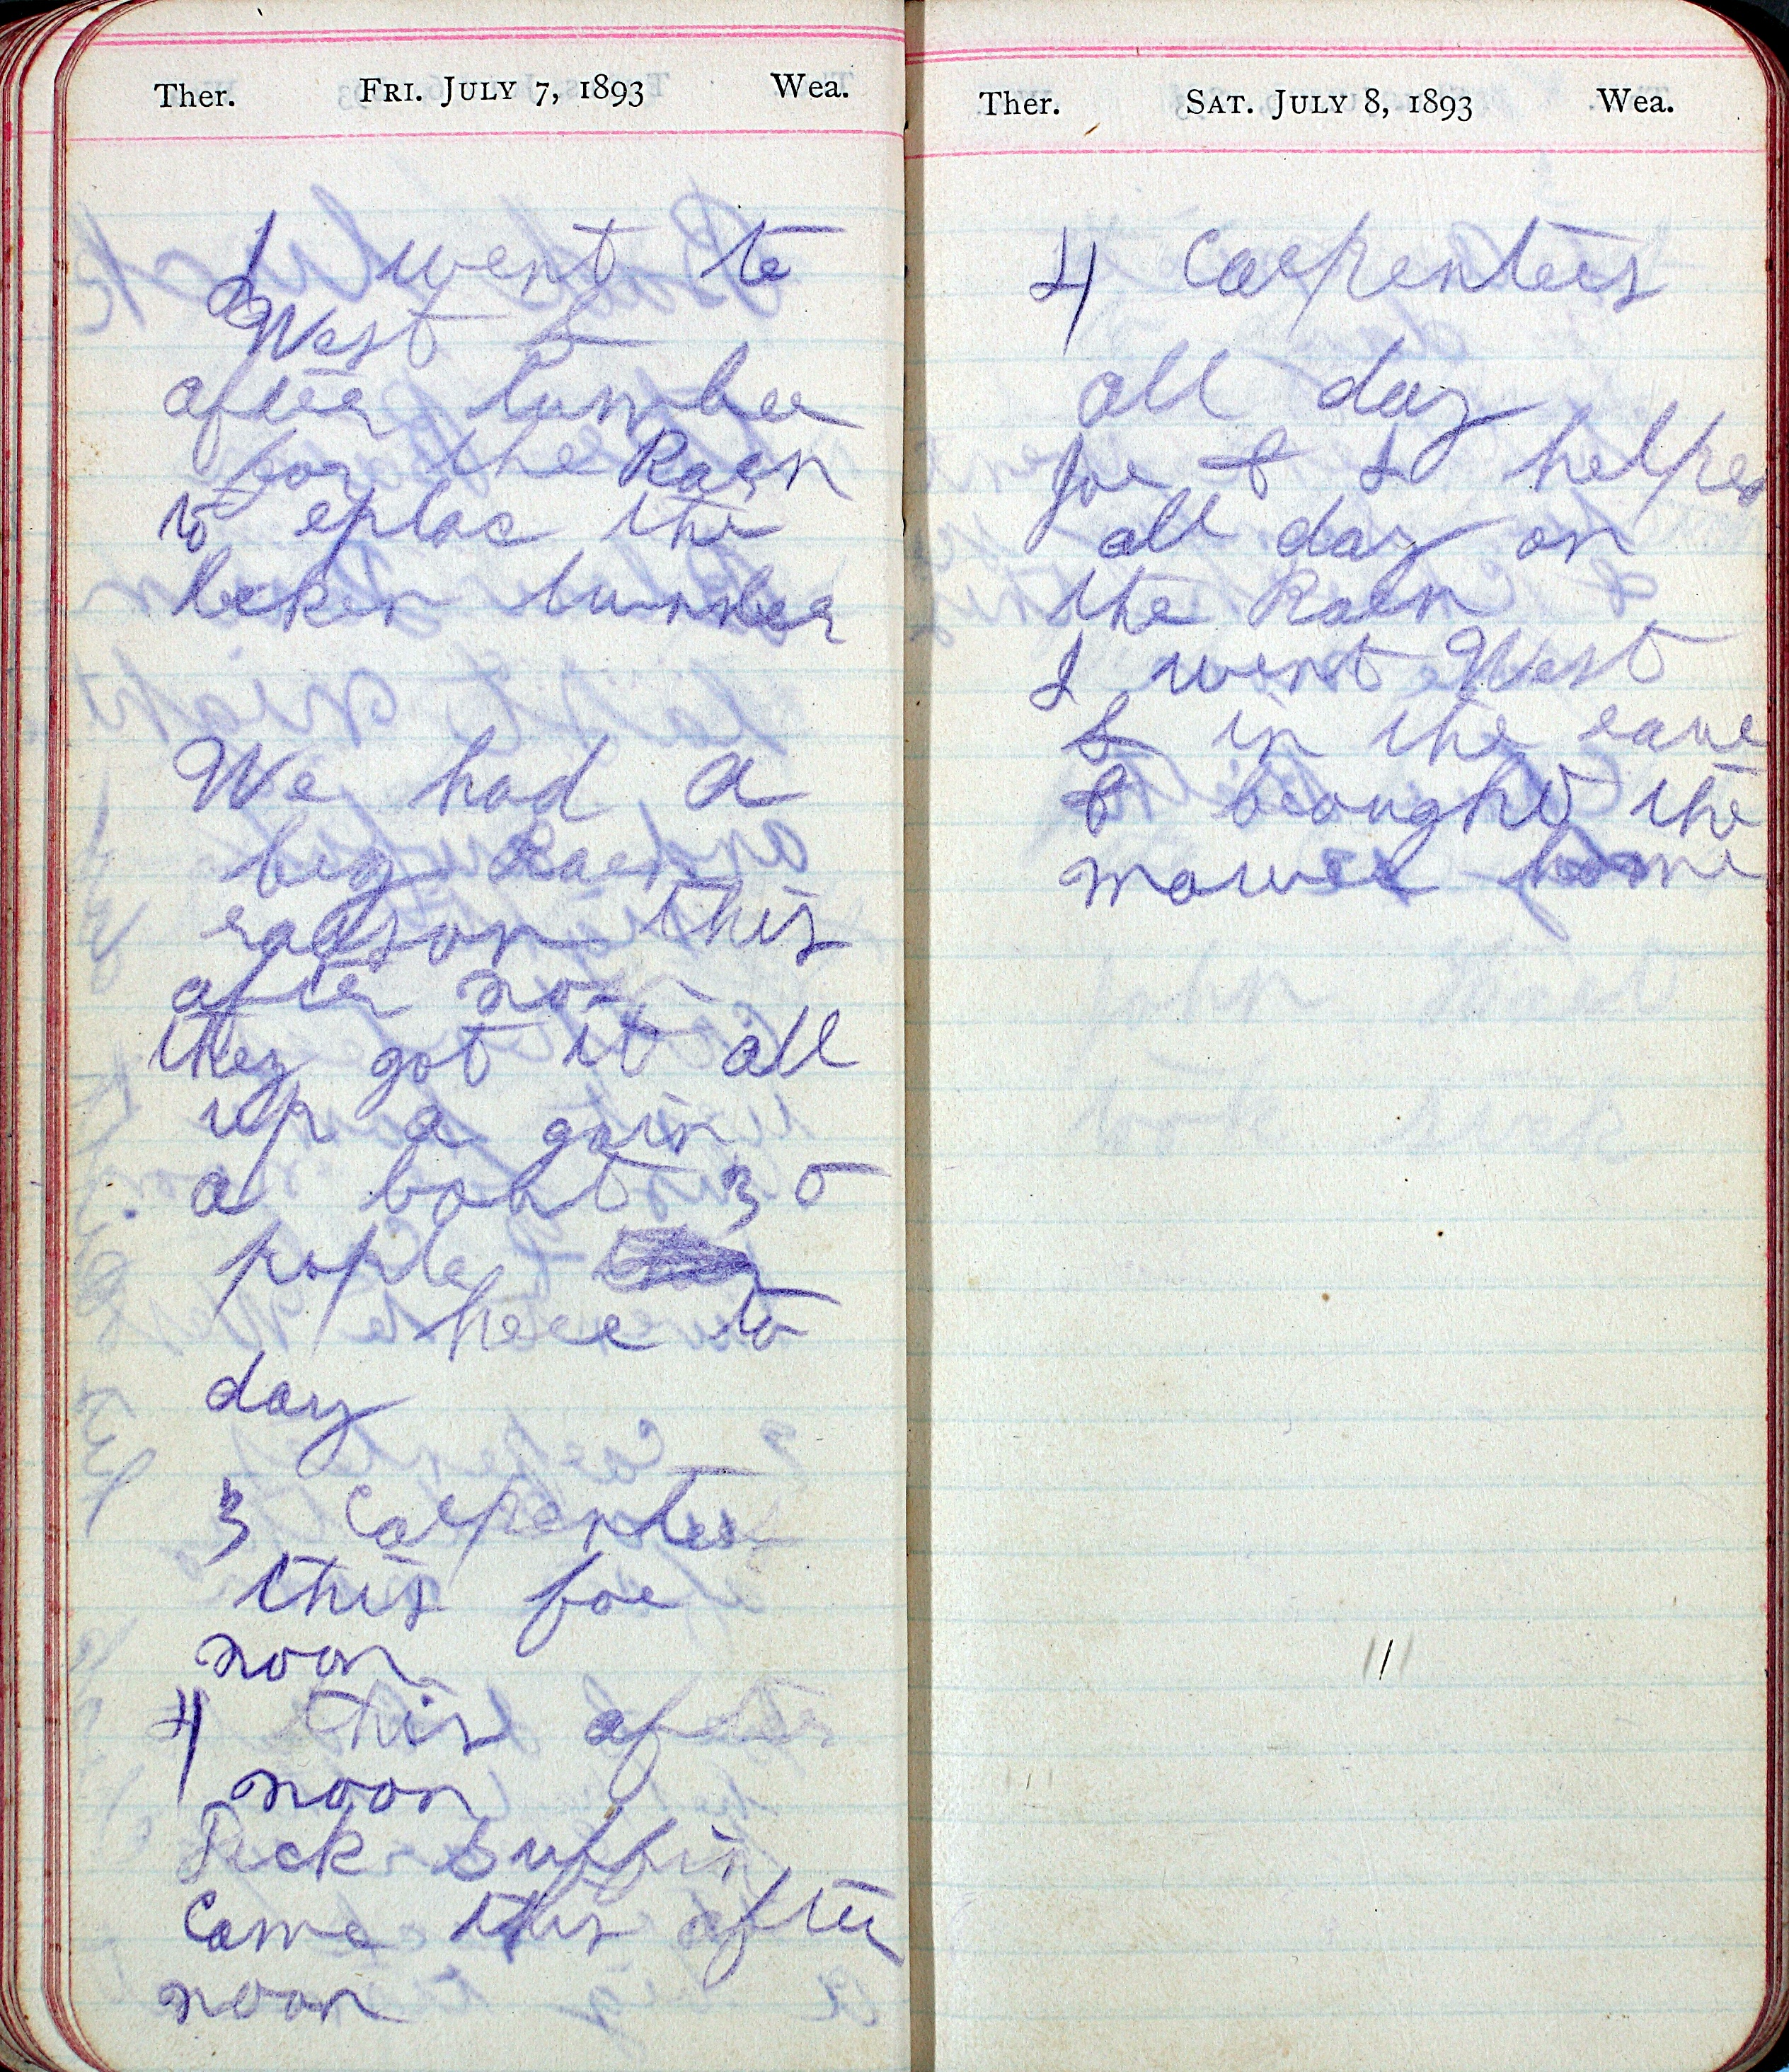 Ther. FRI. JULY 7, 1893 Wea.
I went to
West B
after lumber
for the Raen
to eplac the
bokin lumber
We had a
big Raen
raason this
after noon
they got it all
up a gain
a boht 30
pople
here to
day
3 Carpenter
this for
noon
4 this after
noon
Dick
Came this after
noon
Ther. SAT. JULY 8, 1893 Wea.
4 Carpenters
all day
Joe & I helped
all day on
the Raen
I went West
B in the eave
& brought the
mower home